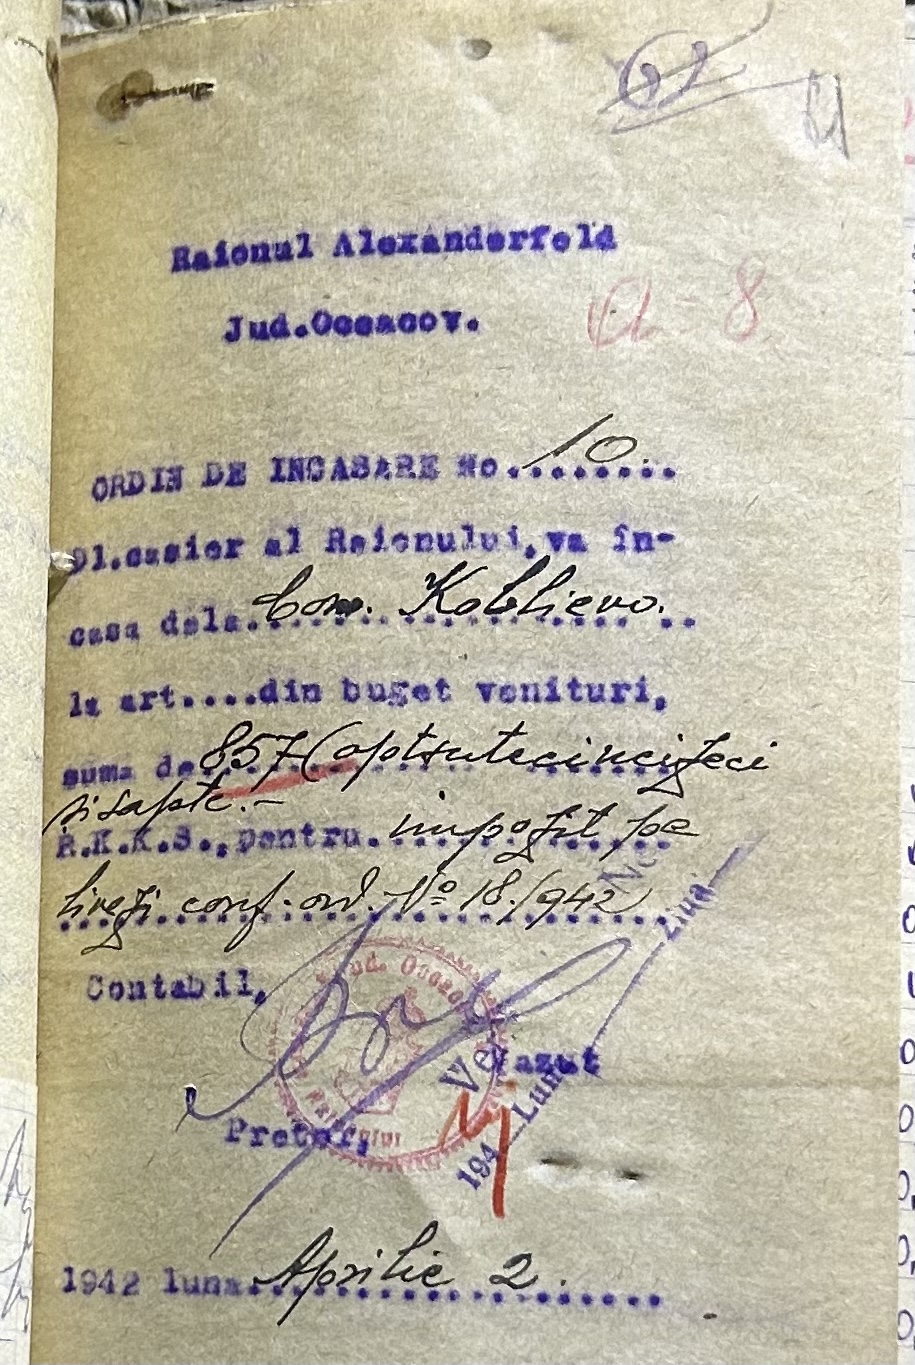 62
61
Raionul Alexanderfeld
Jud.Oceacov.
a-8
ORDIN DE INCASARE No. 10
Dl.casier al Raionului,va în-
casa dela. Com. Koblievo.
la art....din buget venituri,
suma de 857 (optsutecincizeci
și sapte.-
R.K.K.S.,pentru. impozit pe
livezi conf. ord. No 18/942
Contabil,
Jud. Oceacov
Verazut
No
Ziua
Luna
194
Pretor,
1942 luna. Aprilie 2.